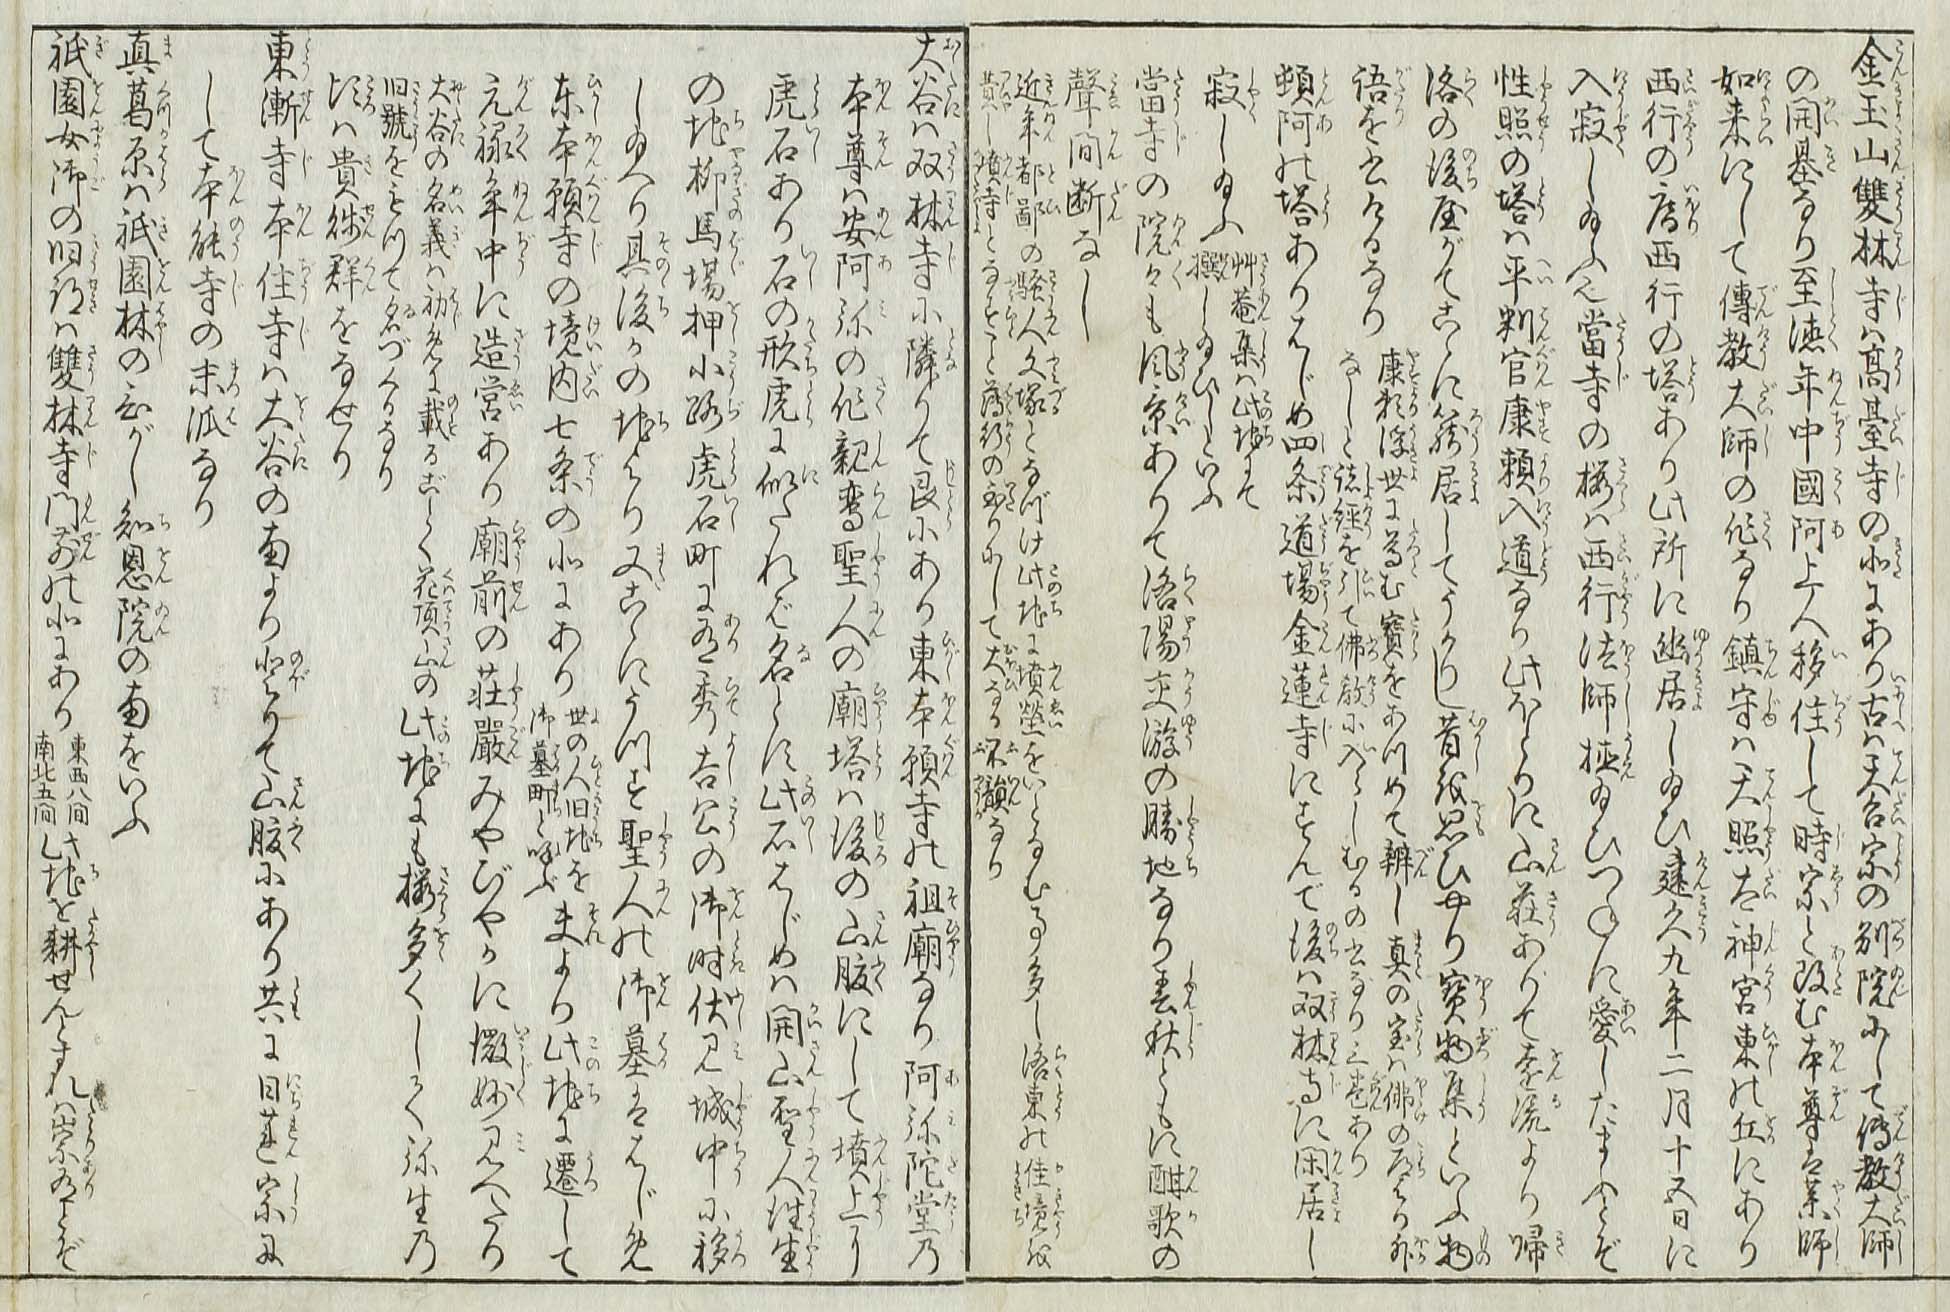 金玉山雙林寺は高臺寺の北にあり古は天台宗の別院にして傳教大師
の開基なり至徳年中國阿上人移住して時宗と改む本尊は薬師
如来にして傳教大師の作なり鎮守は天照太神宮東の丘にあり
西行の庵西行の塔あり此所に幽居し給ひ建久九年二月十五日に
入寂し給ふ當寺の桜は西行法師植給ひつねに愛したまふとぞ
性照の塔は平判官康頼入道なり此ほとりに山荘ありて遠流より帰
洛の後やがてこゝに篭居してうかりし昔を思ひやり寳物集といふ物
語を書けるなり
康頼浮世に尊む寳をあつめて辨し真の宝は佛の道より外
なしと諸經を引て佛教に入らしむるの書なり三巻あり
頓阿の塔ありはじめ四条道場金蓮寺にすんで後は双林寺に閑居し
寂し給ふ
艸菴集は此地にて
撰し給ひしといふ
當寺の院々も風景ありて洛陽交遊の勝地なり春秋ともに酣歌の
聲間断なし
近年都鄙の騒人文塚となづけ此地に墳塋をいとなむ事多し洛東の佳境を
費し墳寺となすこと薄行の至りにして大なる不韻なり
大谷は双林寺に隣りて艮にあり東本願寺の祖廟なり阿弥陀堂の
本尊は安阿弥の作親鸞聖人の廟塔は後の山腹にして墳上に
虎石あり石の形虎に似たれば名とす此石はじめは開山聖人往生
の地柳馬場押小路虎石町にあり秀吉公の御時伏見城中に移
し給へり其後かの地より又こゝにうつす聖人の御墓ははじめ
東本願寺の境内七条の北にあり
世の人旧地を
御墓町と呼ぶ
夫より此地に遷して
元禄年中に造営あり廟前の荘嚴みやびやかに微妙見へたり
大谷の名義は初めに載るごとく花頂山の
旧號をもつて名づくるなり
此地にも桜多くしてく弥生の
比は貴賎群をなせり
東漸寺本住寺は大谷の南より北のぼりて山腹にあり共に日蓮宗に
して本能寺の末派なり
真葛原は祇園林の東がし知恩院の南をいふ
祇園女御の旧跡は雙林寺門前の北にあり
東西八間
南北五間
此地を耕せんとすれば祟ありとぞ